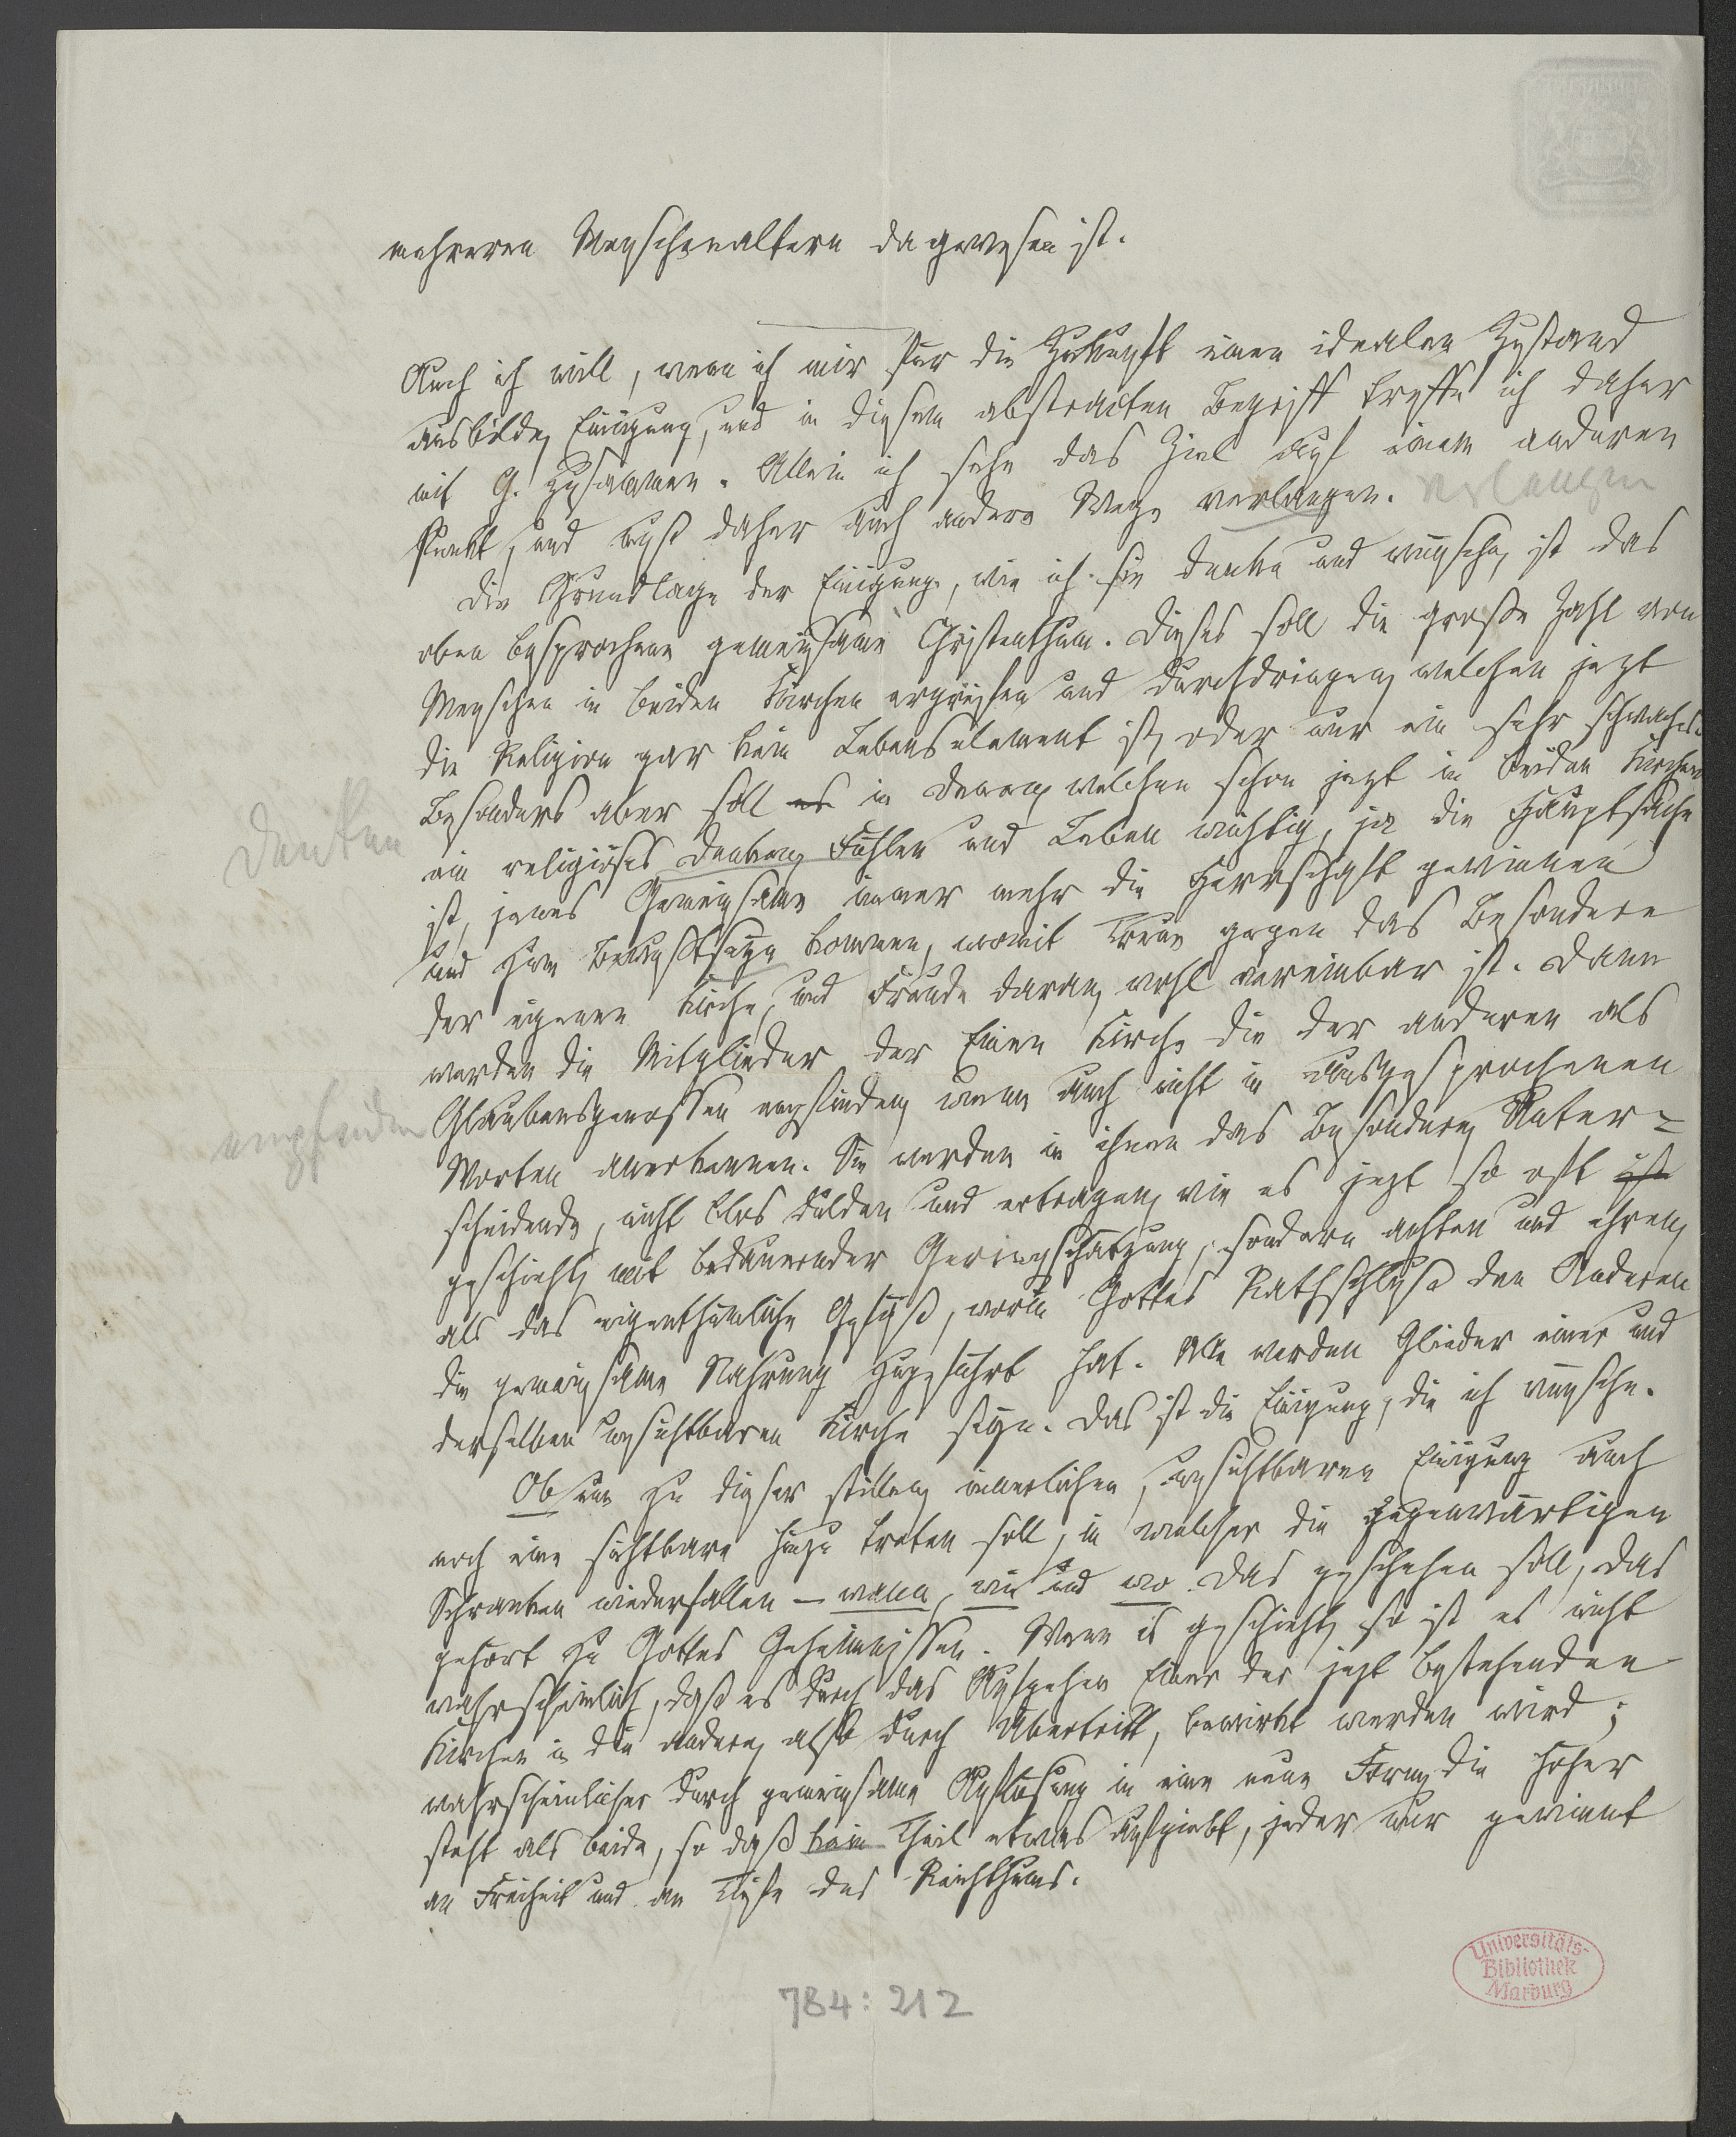 mehreren Menschenaltern da gewesen ist.
Auch ich will, wenn ich mir für die Zukunft einen idealen Zustand
ausbilde, Einigung, und in diesem abstracten Begriff treffe ich daher
mit G. zusammen. Allein ich sehe das Ziel auf einem anderen
Punkt, und muß daher auch andere Wege verlangen. verlangen
Die Grundlage der Einigung, wie ich sie denke und wünsche, ist das
oben besprochene gemeinsame Christenthum. Dieses soll die große Zahl von
Menschen in beiden Kirchen ergreifen und durchdringen, welchen jezt
die Religion gar kein Lebenselement ist, oder nur ein sehr schwaches.
Besonders aber soll es in denen, welchen schon jezt in beiden Kirchen
Denken
ein religiöses Denken, Fühlen und Leben wichtig, ja die Hauptsache
ist, jenes Gemeinsame immer mehr die Herrschaft gewinnen
und zum Bewußtseyn kommen, womit Treue gegen das Besondere
der eigenen Kirche, und Freude daran, wohl vereinbar ist. Dann
werden die Mitglieder der Einen Kirche die der anderen als
empfinden
Glaubensgenossen empfinden, wenn auch nicht in ausgesprochenen
Worten anerkennen. Sie werden in ihnen das Besondere, Unter-
scheidende, nicht blos dulden und ertragen, wie es jezt so oft
geschieht, mit bedauernder Geringschätzung, sondern achten und ehren,
als das eigenthümliche Gefäß, worin Gottes Rathschluß den Anderen
die gemeinsame Nahrung zugeführt hat. Alle werden Glieder einer und
derselben unsichtbaren Kirche seyn. Das ist die Einigung, die ich wünsche.
Ob nun zu dieser stillen, innerlichen, unsichtbaren Einigung auch
noch eine sichtbare hinzu treten soll, in welcher die gegenwärtigen
Schranken niederfallen – wann, wie und wo das geschehen soll, das
gehört zu Gottes Geheimnissen. Wenn es geschieht, so ist es nicht
wahrscheinlich, daß es durch das Aufgehen Einer der jezt bestehenden
Kirchen in die andere, also durch Übertritt, bewirkt werden wird;
wahrscheinlicher durch gemeinsame Auflösung in eine neue Form, die höher
steht als beide, so daß kein Theil etwas aufgiebt, jeder nur gewinnt
an Freiheit und an Tiefe des Reichthums.
784:212
Universitäts-
Bibliothek
Marburg